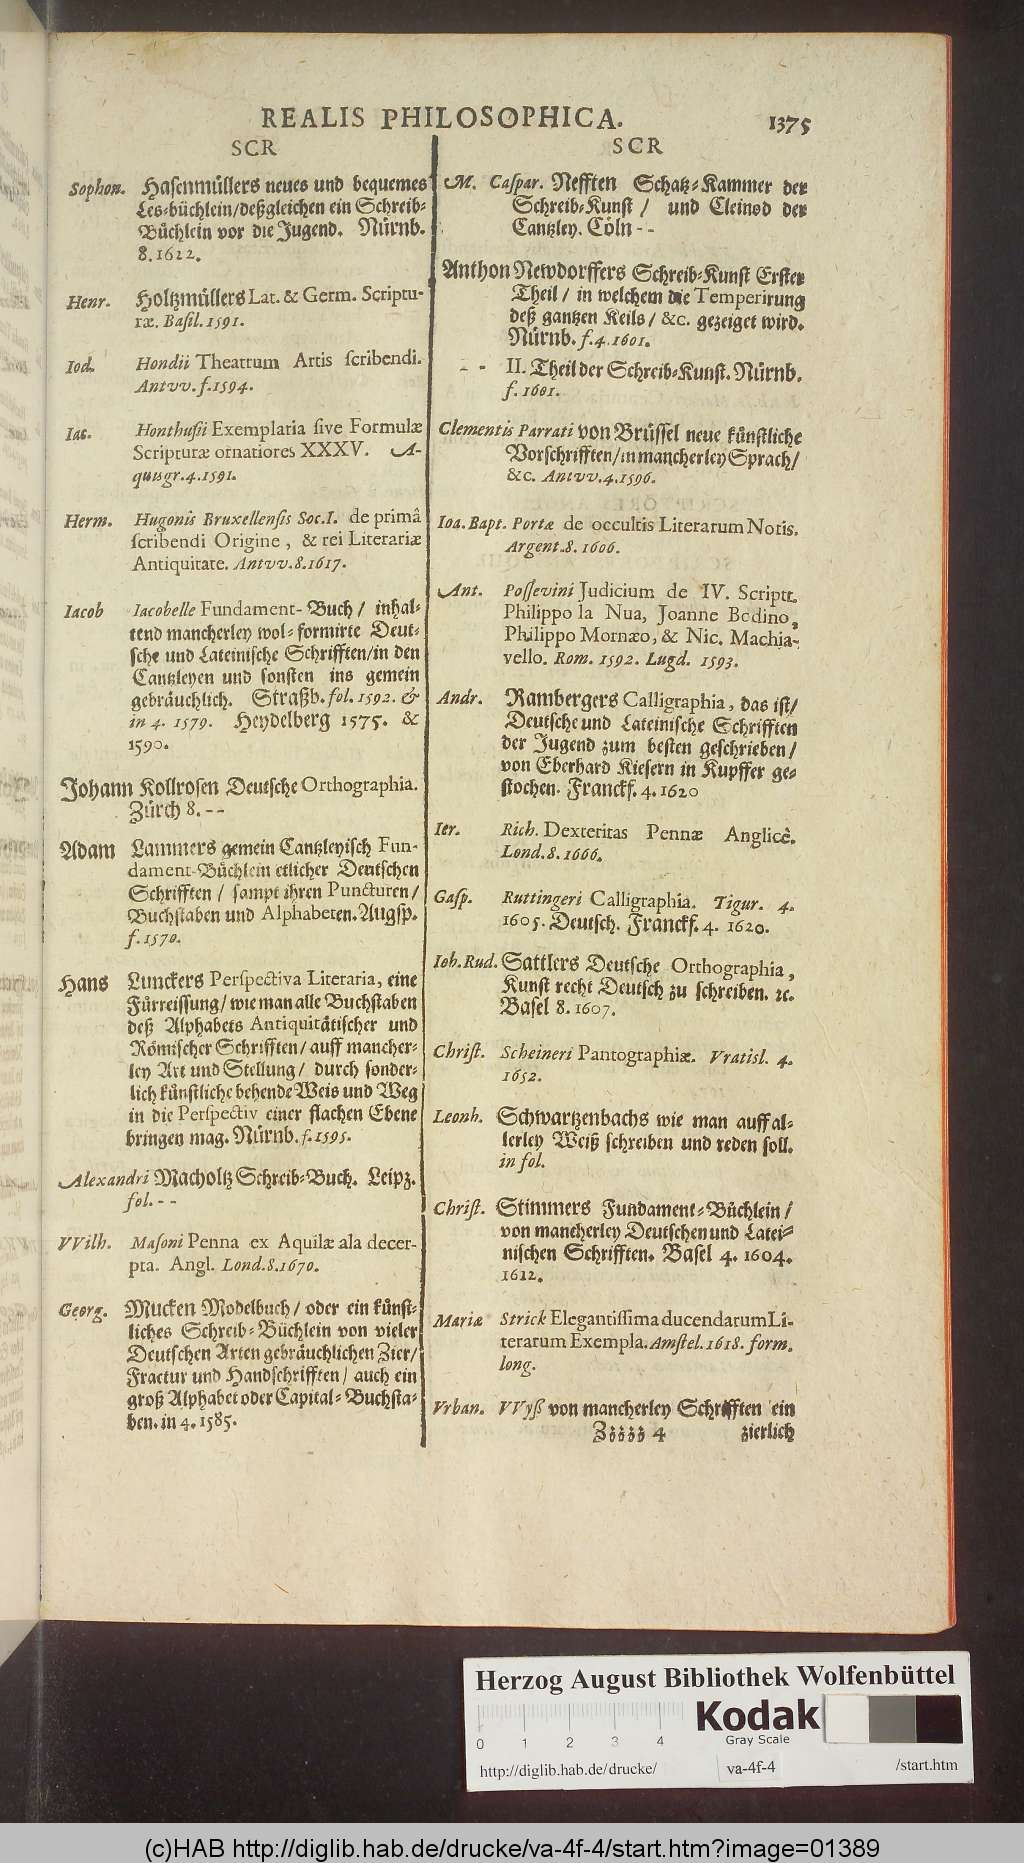 REALIS PHILOSOPHICA. 1375
SCR
Sophon. Hasenmüllers neues und bequemes
Les-büchlein/deßgleichen ein Schreib-
Büchlein vor die Jugend. Nürnb.
8. 1622.
Henr. Holtzmüllers Lat. & Germ. Scriptu-
ræ. Basil. 1591.
Iod. Hondii Theatrum Artis scribendi.
Antvv. f. 1594.
Iac. Honthusii Exemplaria sive Formulæ
Scripturæ ornatiores XXXV. A-
quisgr. 4. 1591.
Herm. Hugonis Bruxellensis Soc. I. de primâ
scribendi Origine, & rei Literariæ
Antiquitate. Antvv. 8. 1617.
Iacob Iacobelle Fundament-Buch/ inhal-
tend mancherley wol-formirte Deut-
sche und Lateinische Schrifften/in den
Cantzleyen und sonsten ins gemein
gebräuchlich. Straßb. fol. 1592. &
in 4. 1579. Heydelberg 1575. &
1590.
Johann Kollrosen Deutsche Orthographia.
Zürch 8. - -
Adam Lammers gemein Cantzleyisch Fun-
dament-Büchlein etlicher Deutschen
Schrifften / sampt ihren Puncturen/
Buchstaben und Alphabeten. Augsp.
f. 1570.
Hans Lunckers Perspectiva Literaria, eine
Fürreissung/ wie man alle Buchstaben
deß Alphabets Antiquitätischer und
Römischer Schrifften/ auff mancher-
ley Art und Stellung/ durch sonder-
lich künstliche behende Weis und Weg
in die Perspectiv einer flachen Ebene
bringen mag. Nürnb. f. 1595.
Alexandri Macholtz Schreib-Buch. Leipz.
fol. - -
VVilh. Masoni Penna ex Aquilæ ala decer-
pta. Angl. Lond. 8. 1670.
Georg. Mucken Modelbuch/ oder ein künst-
liches Schreib-Büchlein von vieler
Deutschen Arten gebräuchlichen Zier/
Fractur und Handschrifften/ auch ein
groß Alphabet oder Capital-Buchsta-
ben. in 4. 1585.
SCR
M. Caspar. Nefften Schatz-Kammer der
Schreib-Kunst / und Cleinod der
Cantzley. Cöln - -
Anthon Newdorffers Schreib-Kunst Erster
Theil/ in welchem die Temperirung
deß gantzen Keils/ &c. gezeiget wird.
Nürnb. f. 4. 1601.
- - II. Theil der Schreib-Kunst. Nürnb.
f. 1601.
Clementis Parrati von Brüssel neue künstliche
Vorschrifften/in mancherley Sprach/
&c. Antvv. 4. 1596.
Ioa. Bapt. Portæ de occultis Literarum Notis.
Argent. 8. 1606.
Ant. Possevini Judicium de IV. Scriptt.
Philippo la Nua, Joanne Bodino,
Philippo Mornæo, & Nic. Machia-
vello. Rom. 1592. Lugd. 1593.
Andr. Rambergers Calligraphia, das ist/
Deutsche und Lateinische Schrifften
der Jugend zum besten geschrieben/
von Eberhard Kiesern in Kupffer ge-
stochen. Franckf. 4. 1620
Ier. Rich. Dexteritas Pennæ Anglicê.
Lond. 8. 1666.
Gasp. Ruttingeri Calligraphia. Tigur. 4.
1605. Deutsch. Franckf. 4. 1620.
Ioh. Rud. Sattlers Deutsche Orthographia,
Kunst recht Deutsch zu schreiben. ꝛc.
Basel 8. 1607.
Christ. Scheineri Pantographiæ. Vratisl. 4.
1652.
Leonh. Schwartzenbachs wie man auff al-
lerley Weiß schreiben und reden soll.
in fol.
Christ. Stimmers Fundament-Büchlein/
von mancherley Deutschen und Latei-
nischen Schrifften. Basel 4. 1604.
1612.
Mariæ Strick Elegantissima ducendarum Li-
terarum Exempla. Amstel. 1618. form.
long.
Vrban. VVyß von mancherley Schrifften ein
Zzzzz 4 zierlich
Herzog August Bibliothek Wolfenbüttel
0 1 2 3 4
Kodak
Gray Scale
http://diglib.hab.de/drucke/ va-4f-4 /start.htm
(c)HAB http://diglib.hab.de/drucke/va-4f-4/start.htm?image=01389